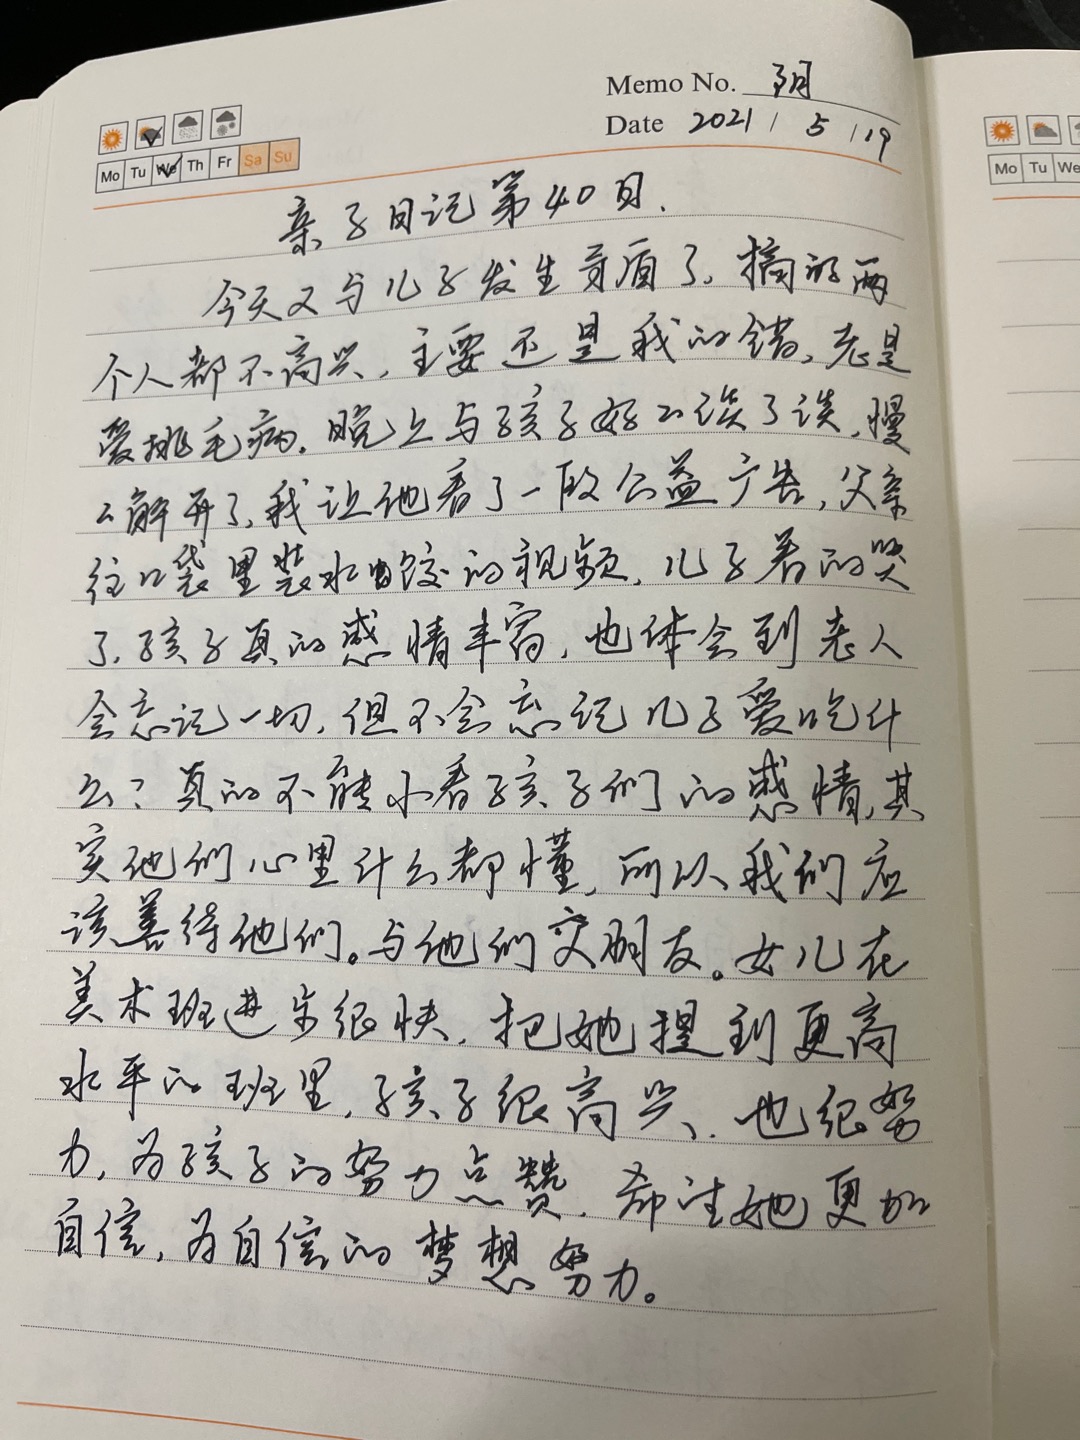 Memo No.
Date 2021 / 5 / 19
Mo Tu We Th Fr Sa Su
Mo Tu We
亲子日记第40日.
今天又与儿子发生矛盾了,搞的两
个人都不高兴,主要还是我的错,老是
爱挑毛病.晚上与孩子好好谈了谈,慢
慢解开了,我让他看了一段公益广告,父亲
往口袋里装水饺的视频,儿子看的哭
了.孩子真的感情丰富,也体会到老人
会忘记一切,但不会忘记儿子爱吃什
么?真的不能小看孩子们的感情,其
实他们心里什么都懂,所以我们应
该善待他们。与他们交朋友。女儿在
美术班进步很快,把她提到更高
水平的班里,孩子很高兴,也很努
力,为孩子的努力点赞,希望她更加
自信,为自信的梦想努力。